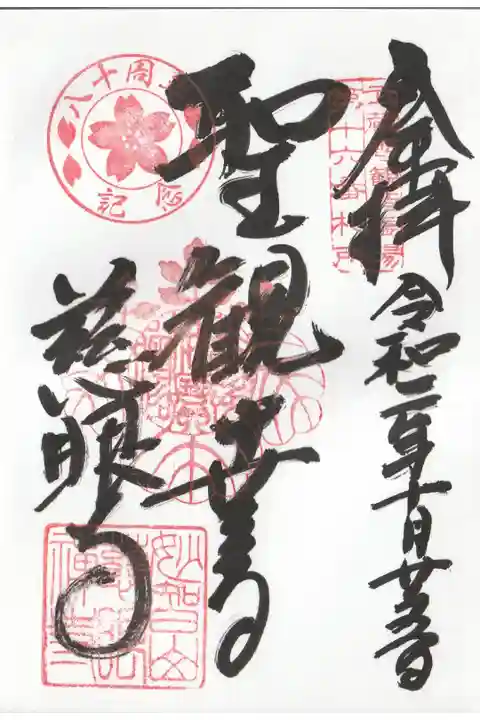 奉拝
令和二年十月廿五日
第十六番札所
聖観世音
八十周年記
慈眼寺
妙智山